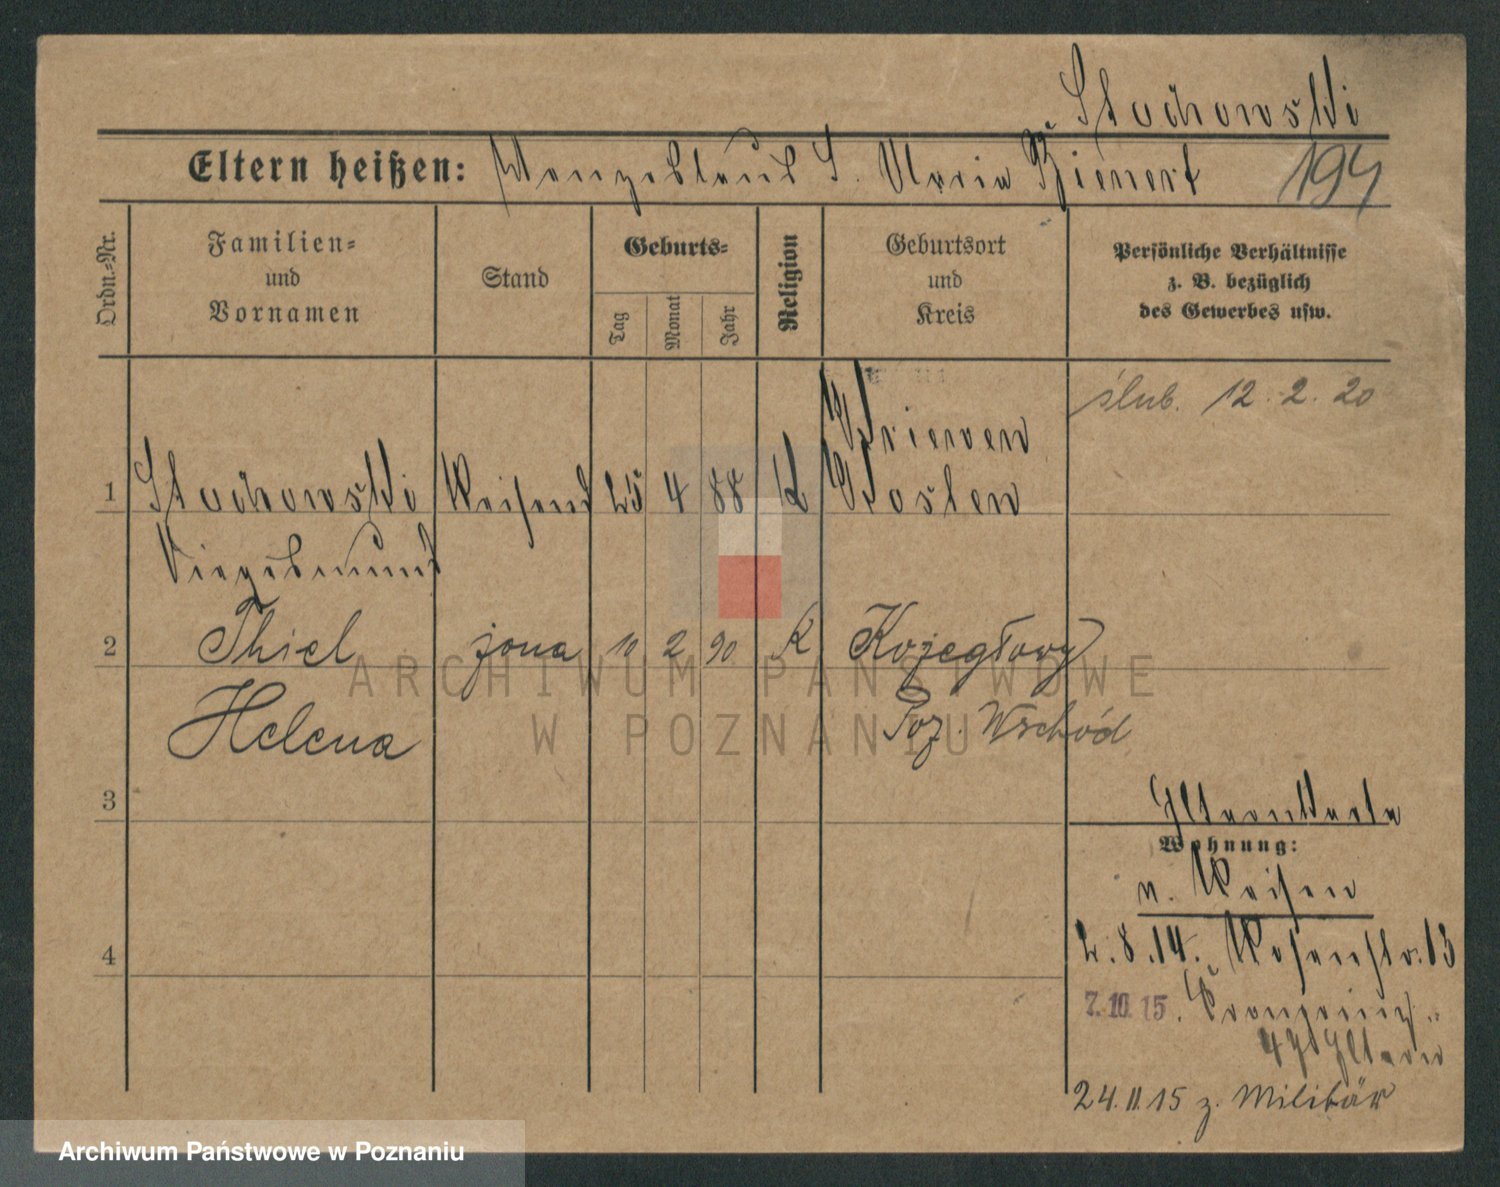 Stachowski
Eltern heißen: Wenzeslaus S. Maria Bienert 194
Ordn.=Nr. Familien= und Vornamen Stand Geburts= Tag Monat Jahr Religion Geburtsort und Kreis Persönliche Verhältnisse z. B. bezüglich des Gewerbes usw.
ślub. 12.2.20
Kriewen
1 Stachowski Reisend 25 4 88 K Kosten
Siegesmund
2 Thiel żona 10 2 90 K Koziegłowy
Helena Poz. Wschód
3
Elternkarte
Wohnung:
n. Reisen
4
2.8.14. Rosenstr. 13
7.10.15. Kronprinz=
Eltern
24.11.15 z. Militär
ARCHIWUM PAŃSTWOWE
W POZNANIU
Archiwum Państwowe w Poznaniu